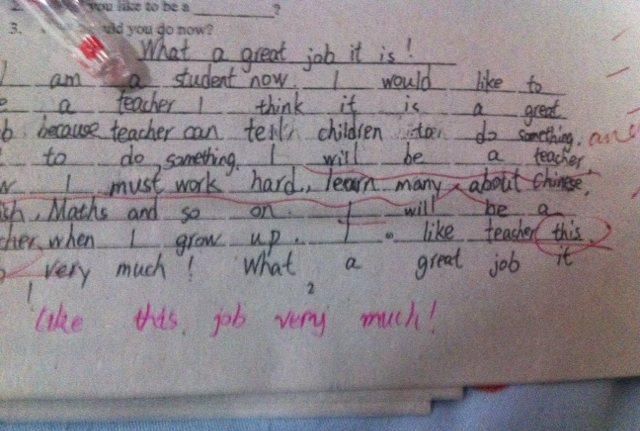 2. you like to be a ________?
3. ld you do now?
What a great job it is!
I am a student now. I would like to
a teacher I think it is a great
b because teacher can children to do something. an
to do something. I will be a teacher,
w I must work hard, learn many about Chinese,
ish, Maths and so on. I will be a
cher when I grow up. I like teacher this
very much! What a great job it
1 2
Like this job very much!